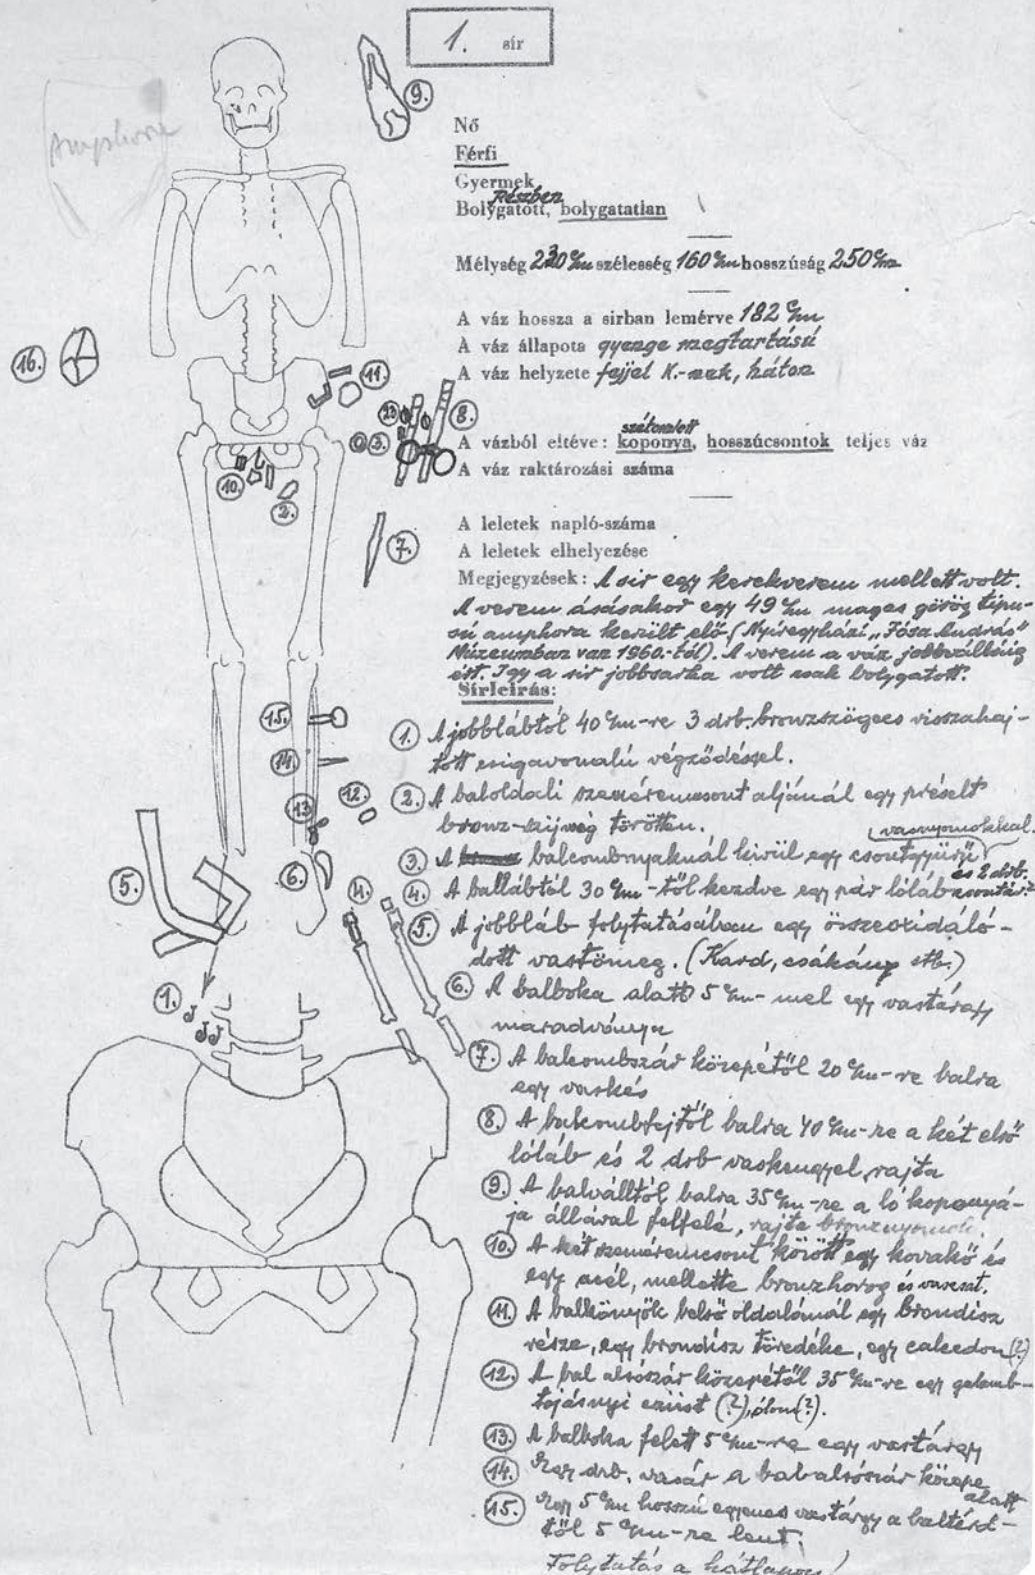 1. sír
9.
Amphora
Nő
Férfi
Gyermek
Részben
Bolygatott, bolygatatlan
Mélység 230 cm szélesség 160 cm hosszúság 250 cm
A váz hossza a sirban lemérve 182 cm
A váz állapota gyenge megtartású
A váz helyzete fejjel K.-nek, háton
16.
11.
8.
3.
A vázból eltéve: koponya, hosszúcsontok teljes váz
A váz raktározási száma
10.
2.
A leletek napló-száma
7.
A leletek elhelyezése
Megjegyzések: A sír egy kerekverem mellett volt.
A verem ásásakor egy 49 cm magas görög típu-
sú amphora került elő (Nyíregyházi „Jósa András"
Múzeumban van 1960.-tól). A verem a váz jobbválláig
ért. Igy a sír jobbsarka volt csak bolygatott.
Sírleírás:
15.
14.
13.
12.
5.
6.
4.
1.
1. A jobblábtól 40 cm-re 3 drb. bronzszögecs visszahaj-
tott csigavonalú végződéssel.
2. A baloldali szeméremcsont aljánál egy préselt
bronz-szíjvég törötten.
vasnyomokkal.
3. A balcombnyaknál kívül egy csontgyürü és 2 drb.
4. A ballábtól 30 cm-től kezdve egy pár lóláb
5. A jobbláb folytatásában egy összeoxidáló-
dott vastömeg. (Kard, csákány stb.)
6. A balboka alatt 5 cm-mel egy vastárgy
maradványa
7. A balcombszár közepétől 20 cm-re balra
egy vaskés
8. A balcombfejtől balra 40 cm-re a két első
lóláb és 2 drb vaskengyel rajta
9. A balválltól balra 35 cm-re a ló koponyá-
ja állával felfelé, rajta bronznyomok.
10. A két szeméremcsont között egy kovakő és
egy acél, mellette bronzhorog és vascsat.
11. A balkönyök belső oldalánál egy brondísz
része, egy brondísz töredéke, egy calcedon (?)
12. A bal alsószár közepétől 35 cm-re egy galamb-
tojásnyi ezüst (?), ólom (?).
13. A balboka felett 5 cm-re egy vastárgy
14. Egy drb. vasár a balalsószár közepe alatt
15. Egy 5 cm hosszú egyenes vastárgy a baltérd-
től 5 cm-re lent.
Folytatás a hátlapon!